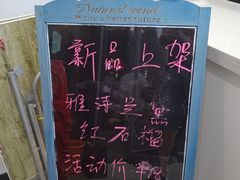 Natural wind
Write a better future
新品上架
雅诗兰黛
红石榴
活动价